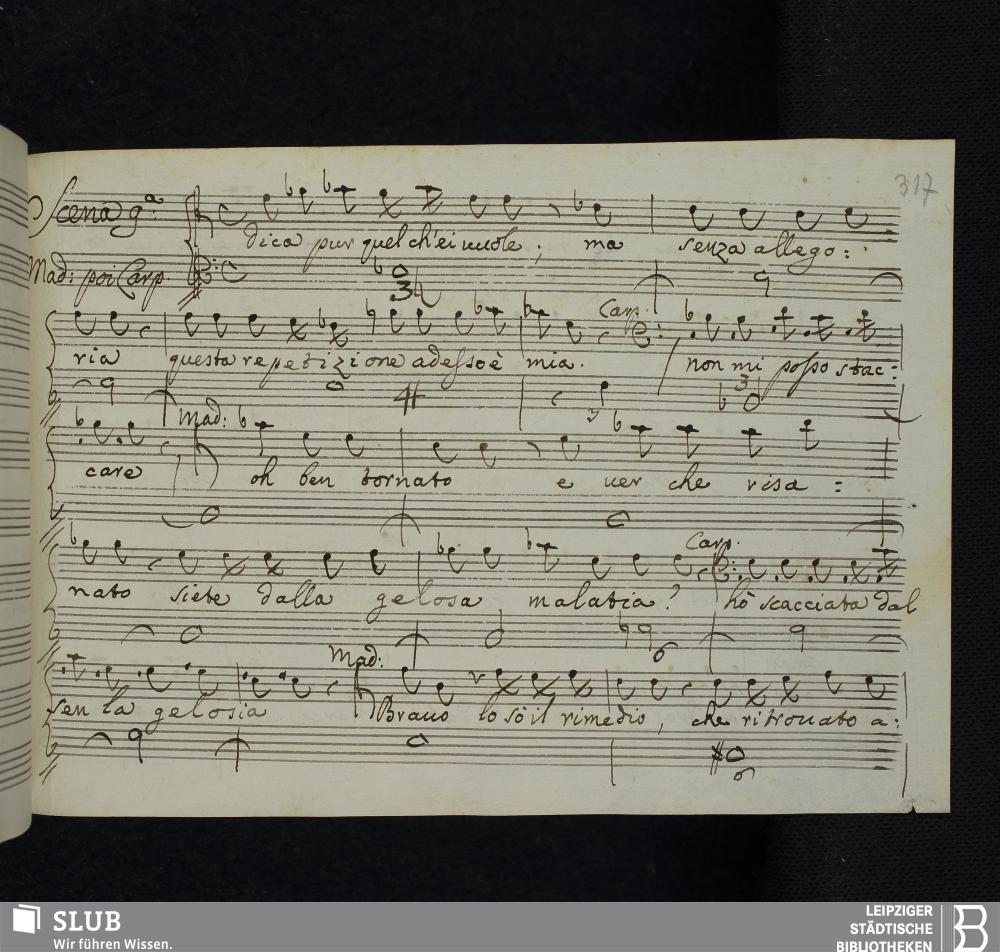 317
Scena 9ª.
dica pur quel ch'ei uuole; ma senza allego:
Mad: poi Carp.
Carp:
ria questa repetizione adesso è mia. non mi posso stac:
Mad:
care oh ben tornato e uer che risa:
Carp.
nato siete dalla gelosa malatia? hò scacciata dal
Mad:
sen la gelosia Brauo lo sò il rimedio, che ritrouato a:
SLUB
Wir führen Wissen.
LEIPZIGER
STÄDTISCHE
BIBLIOTHEKEN
B